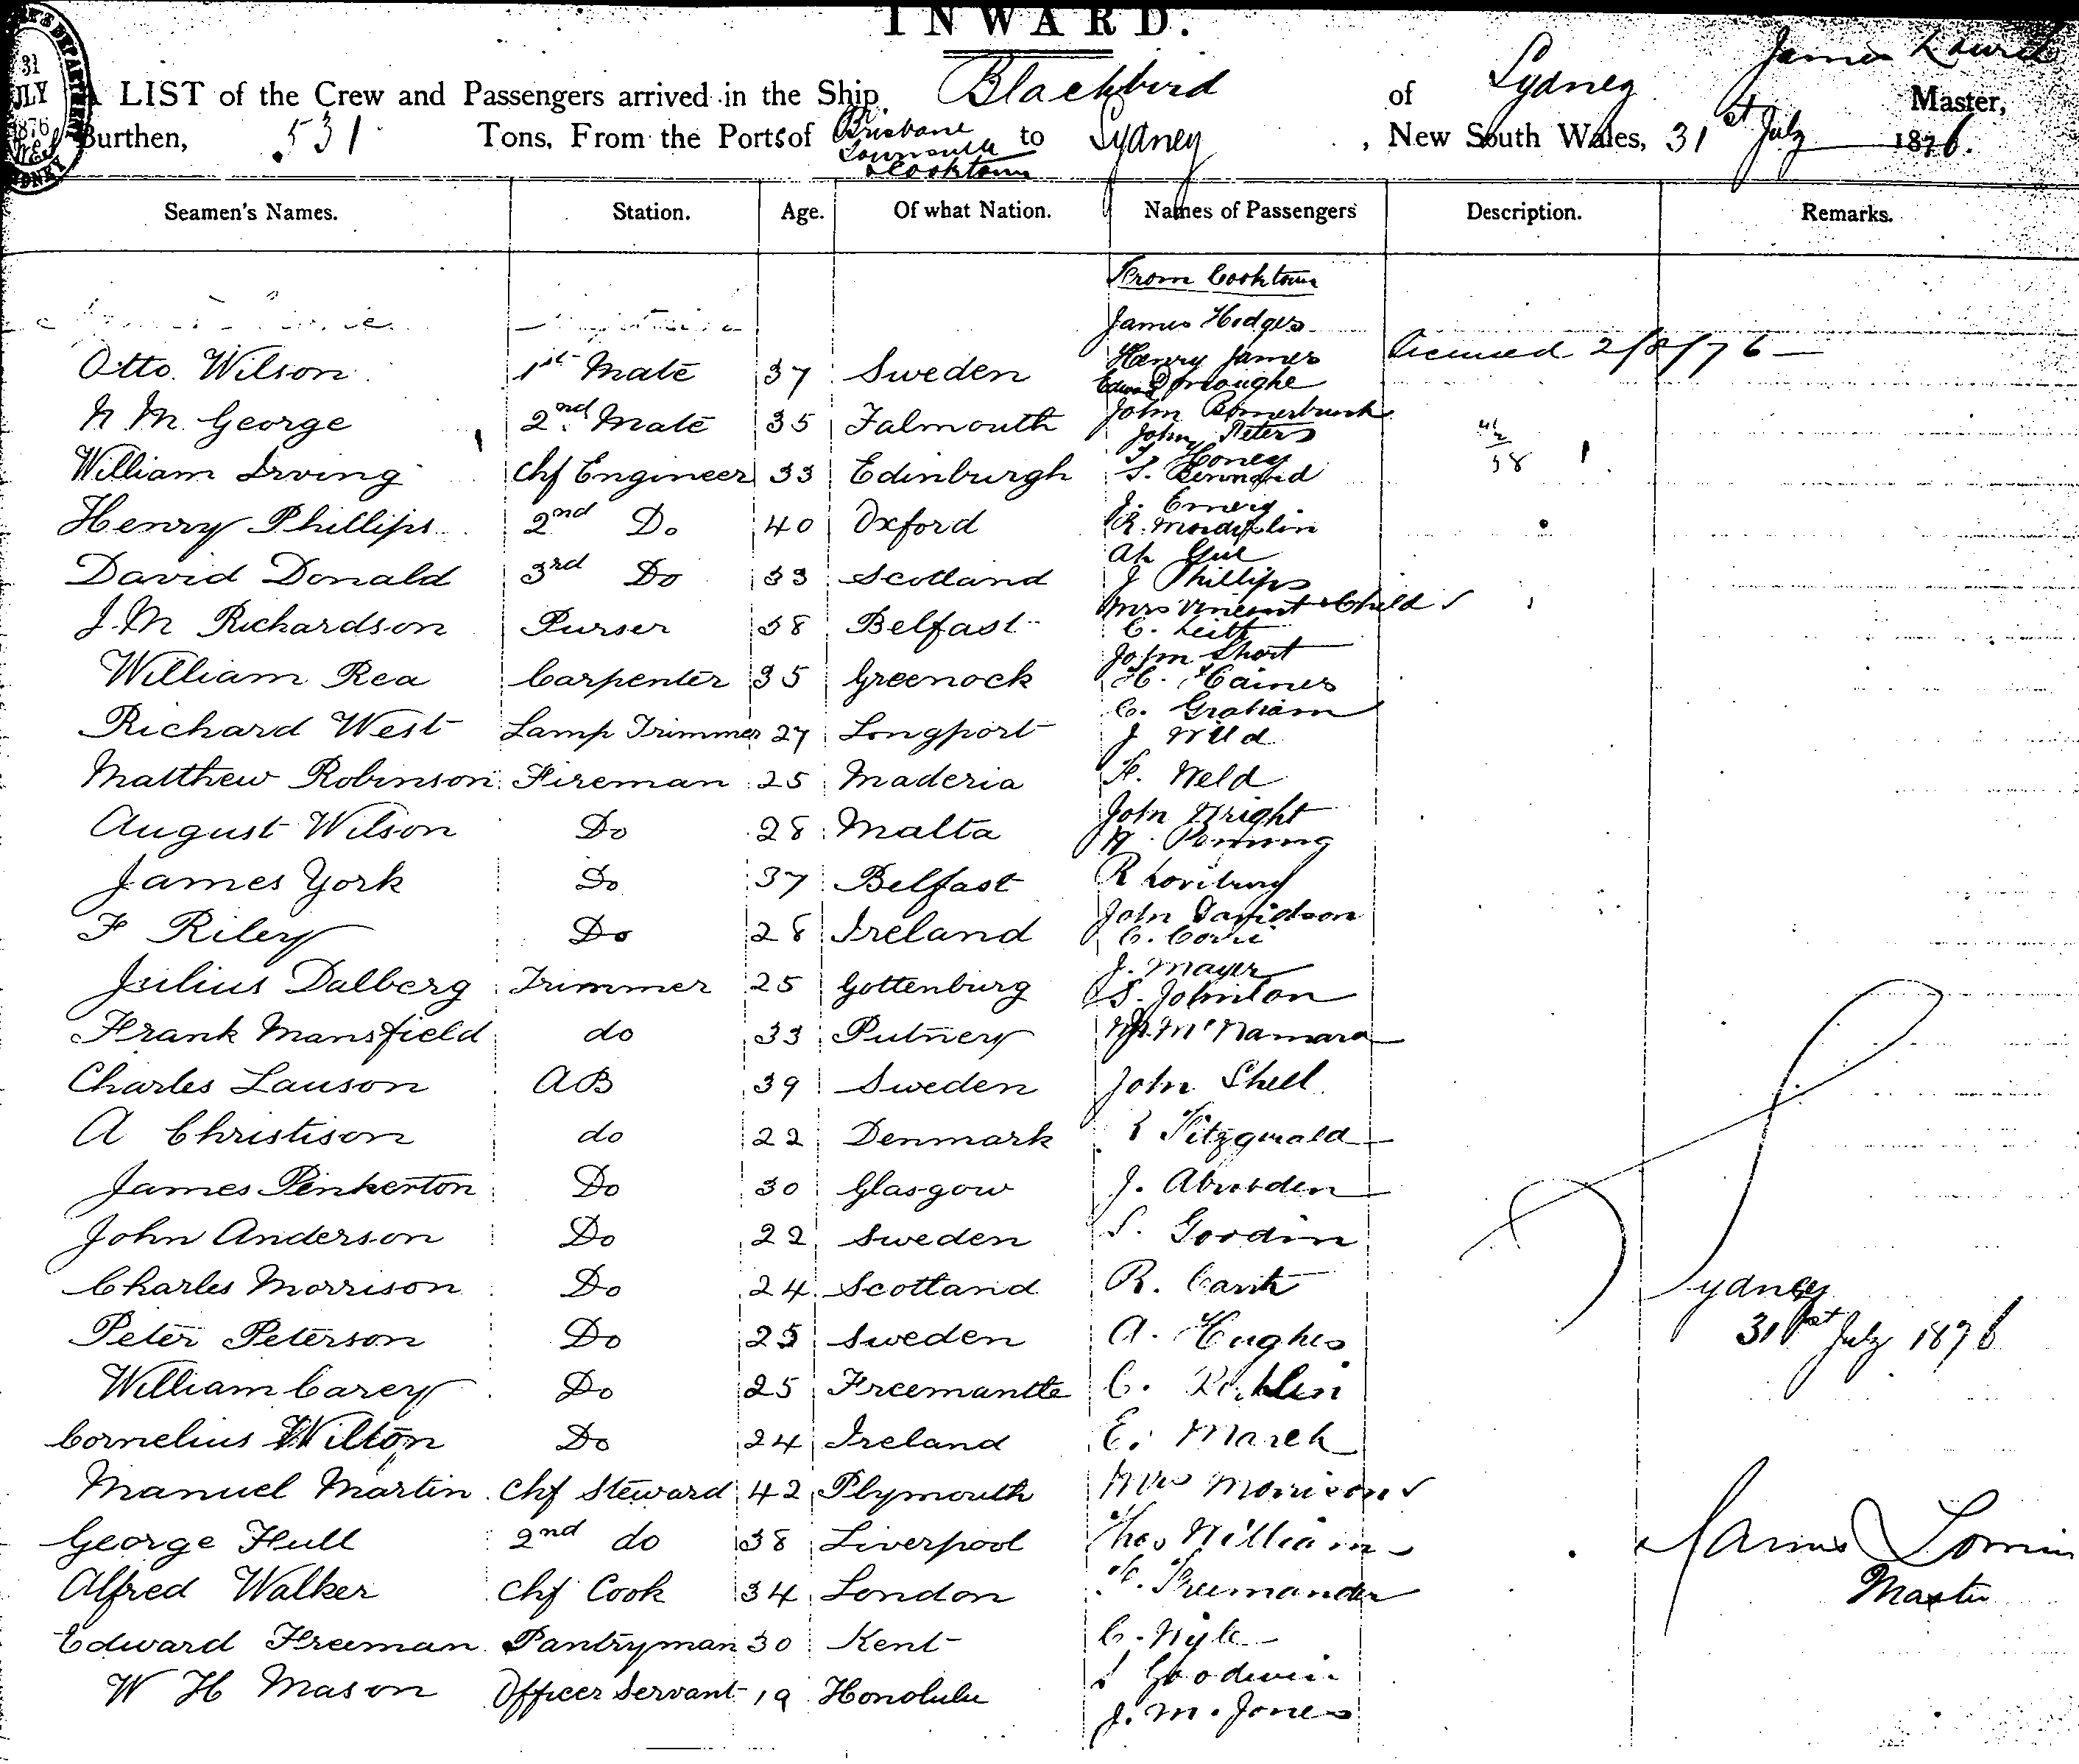 INWARD.
A LIST of the Crew and Passengers arrived in the Ship Blackbird of Sydney James Master,
Burthen, 531 Tons, From the Ports of Brisbane to Sydney, New South Wales, 31st July 1876.
Cooktown
31
JLY
1876
Seamen's Names. Station. Age. Of what Nation. Names of Passengers Description. Remarks.
From Cooktown
James Hodges
Otto Wilson 1st Mate 37 Sweden Henry James 2/8/76
Edward
N M George 2nd Mate 35 Falmouth John
John Peters
William Irving Chf Engineer 33 Edinburgh Honey
S.
J. Emery
Henry Phillips 2nd Do 40 Oxford R.
Ah
David Donald 3rd Do 33 Scotland J Phillips
Mrs Vincent & Child
J. M Richardson Purser 38 Belfast C. Leith
John Short
William Rea Carpenter 35 Greenock H. Haines
C. Graham
Richard West Lamp Trimmer 27 Longport J Wild
Matthew Robinson Fireman 25 Maderia H. Weld
John Wright
August Wilson Do 28 Malta W.
James York Do 37 Belfast R
John Davidson
F Riley Do 28 Ireland C.
J. Mayer
Julius Dalberg Trimmer 25 Gottenburg S. Johnston
Frank Mansfield do 33 Putney McNamara
Charles Lauson AB 39 Sweden John Shell
A Christison do 22 Denmark Fitzgerald
James Penkerton Do 30 Glasgow J.
John Anderson Do 22 Sweden S. Goodin
Charles Morrison Do 24 Scotland R. Sydney
Peter Peterson Do 25 Sweden A. Hughes 31st July 1876
William Carey Do 25 Freemantle C.
Cornelius Wilton Do 24 Ireland E. March
Manuel Martin Chf Steward 42 Plymouth Mrs Morrison
George Hull 2nd do 38 Liverpool Thos Williams James
Alfred Walker Chf Cook 34 London Master
Edward Freeman Pantryman 30 Kent C. Wyle
Goodwin
W H Mason Officer Servant 19 Honolulu J. M. Jones